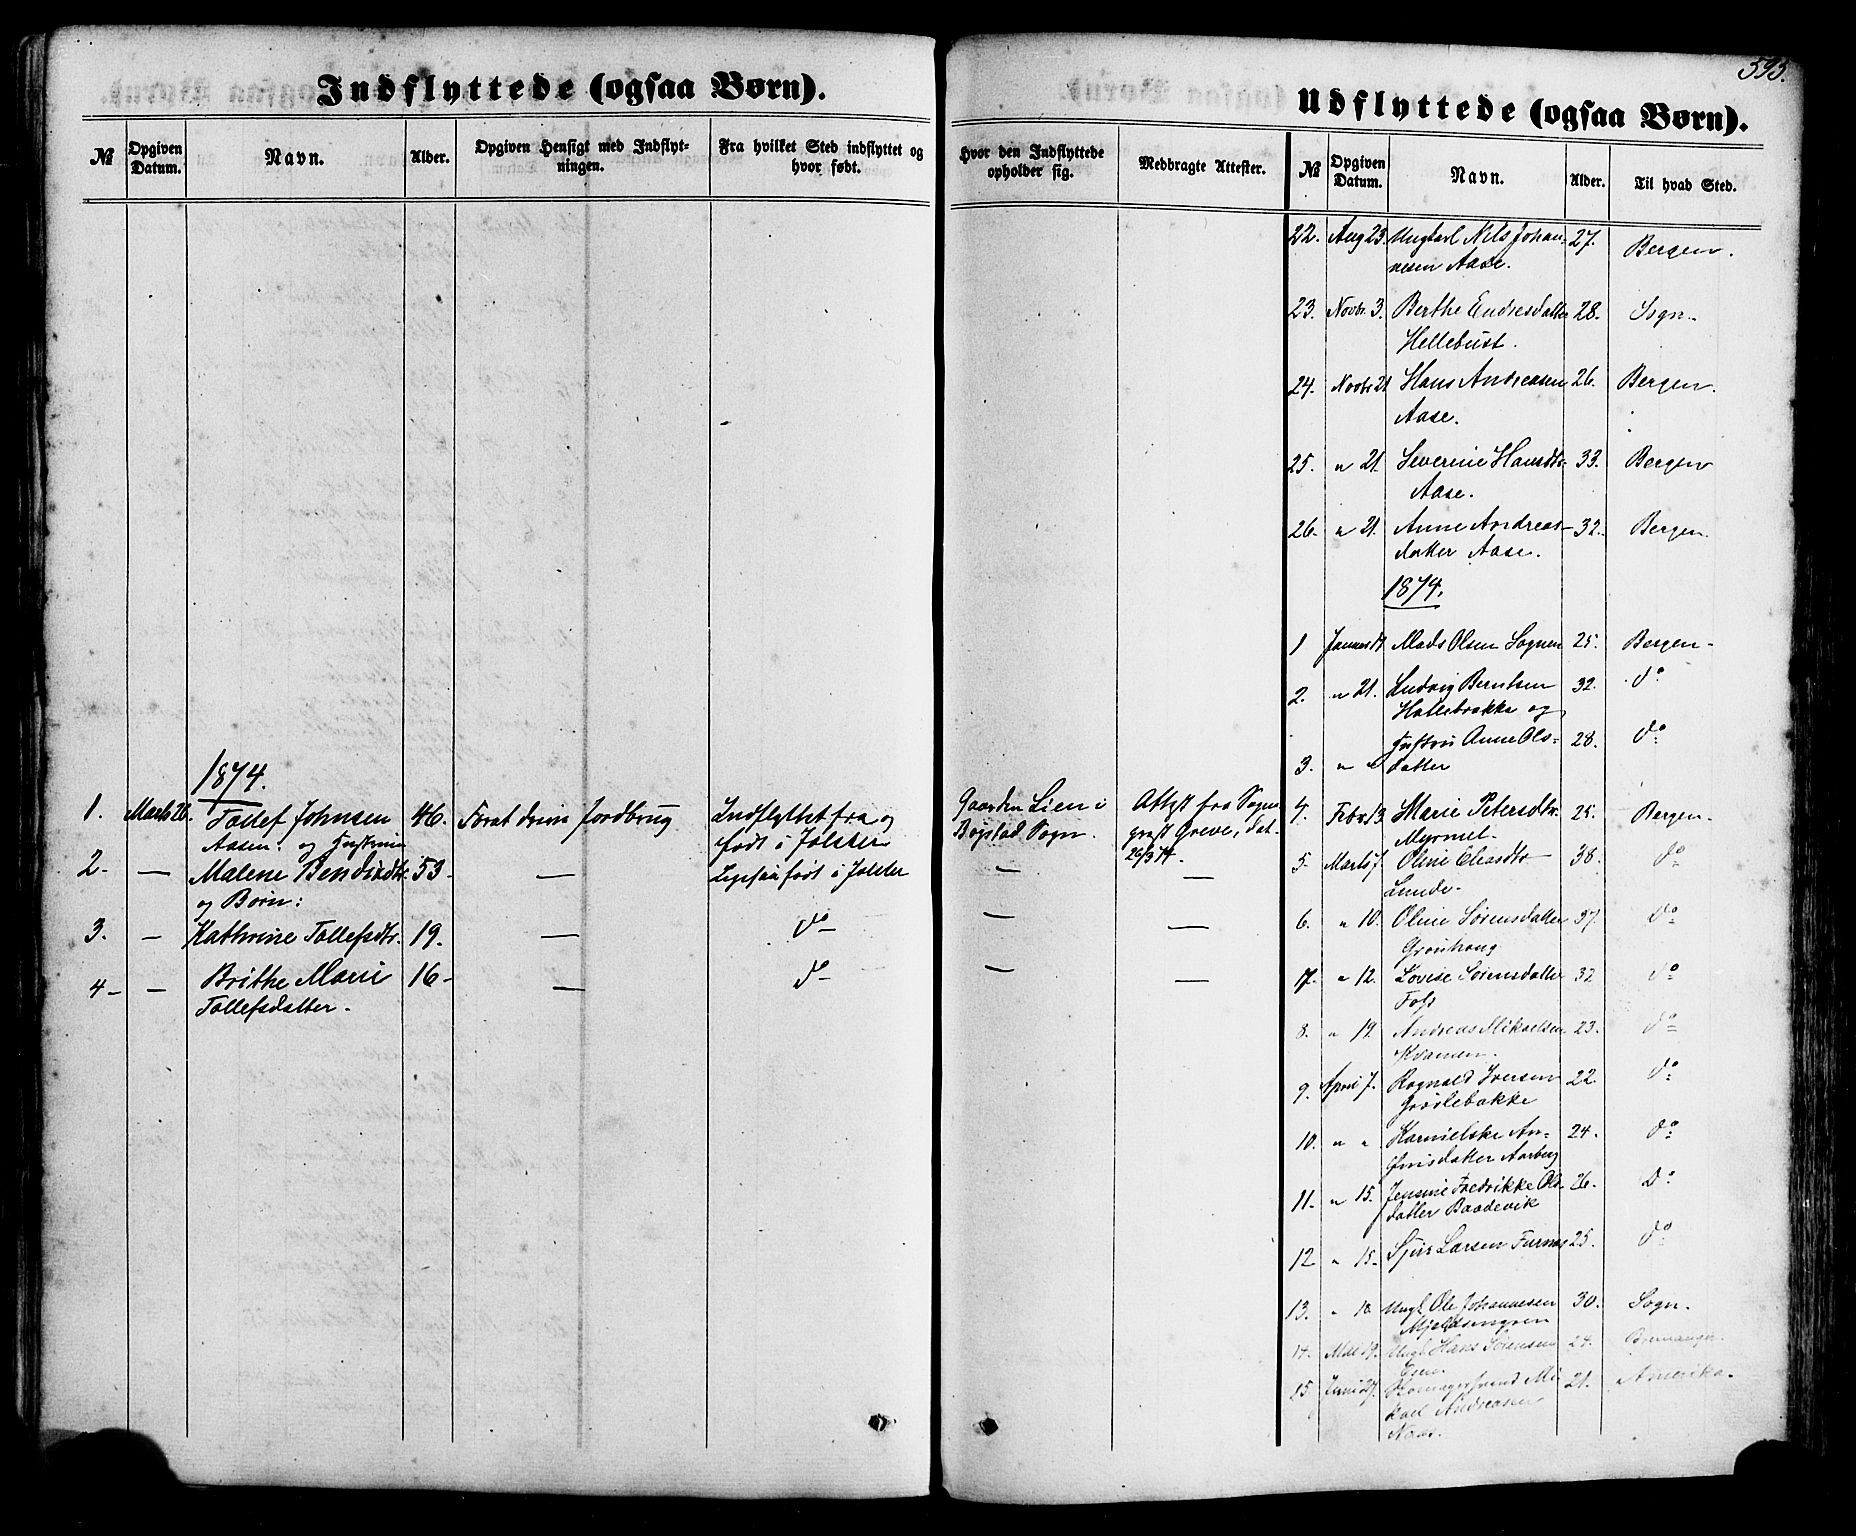 Indflyttede (ogsaa Børn).
№ Opgiven Datum. Navn. Alder. Opgiven Hensigt med Indflyt-
ningen. Fra hvilket Sted indflyttet og
hvor født.
1874.
1. Marts 26. Tollef Johnsen 46. For at drive Jordbrug Indflyttet fra og
Aasen og født i Jølster
2- — Malene 53- — Ligesaa født i Jølster
og Børn:
3. — Kathrine Tollefsdtr. 19. — do
4- — Brithe Marie 16- — do
Tollefsdatter.
593.
Udflyttede (ogsaa Børn).
Hvor den Indflyttede
opholder sig. Medbragte Attester.
Gaarden Lien i Attest fra Sogne
Sogn. Greve, dat.
26/3 74.
— —
— —
— —
№ Opgiven Datum. Navn. Alder. Til hvad Sted.
22. Aug 23. Ungkarl Nils Johan- 27. Bergen.
nesen Aase.
23. Novbr. 3. Berthe Endresdatter 28. Sogn.
Hellebust.
24. Novbr 21 Hans Andreasen 26. Bergen.
Aase.
25. " 21. Severine Hansdtr. 33. Bergen
Aase.
26. " 21. Anne Andreas- 32. Bergen.
datter Aase.
1874.
1 Mads Olsen Sognen 25. Bergen-
2. " 21. Ludvig Berntsen 32. do
og
3. " " Anne Ols- 28. do
datter
4. Febr. 13 Marie Petersdtr. 25. Bergen.
Myrmel.
5. Marts 7. Oline 38. do
Lunde.
6. " 10. Oline Sørensdatter 37. do
Grønhaug
7. " 12. Lovise Sørensdatter 32 do
Foss
8. " 19. Andreas Mikaelsen 23. do
Kvamen.
9. April 7. Rognald Iversen 22. do
10. " " An- 24. do
datter Aarberg
11. " 15. Jensine Fredrikke Ols 26. do
datter Baadevik
12 " 15. Larsen Furnæs 25. do
13. " Ungk. Ole Johannesen 30. Sogn.
14. Ungk Hans Sørensen 24. Bremanger.
15. Juni 27. Mi- 21. Amerika.
kael Andreasen